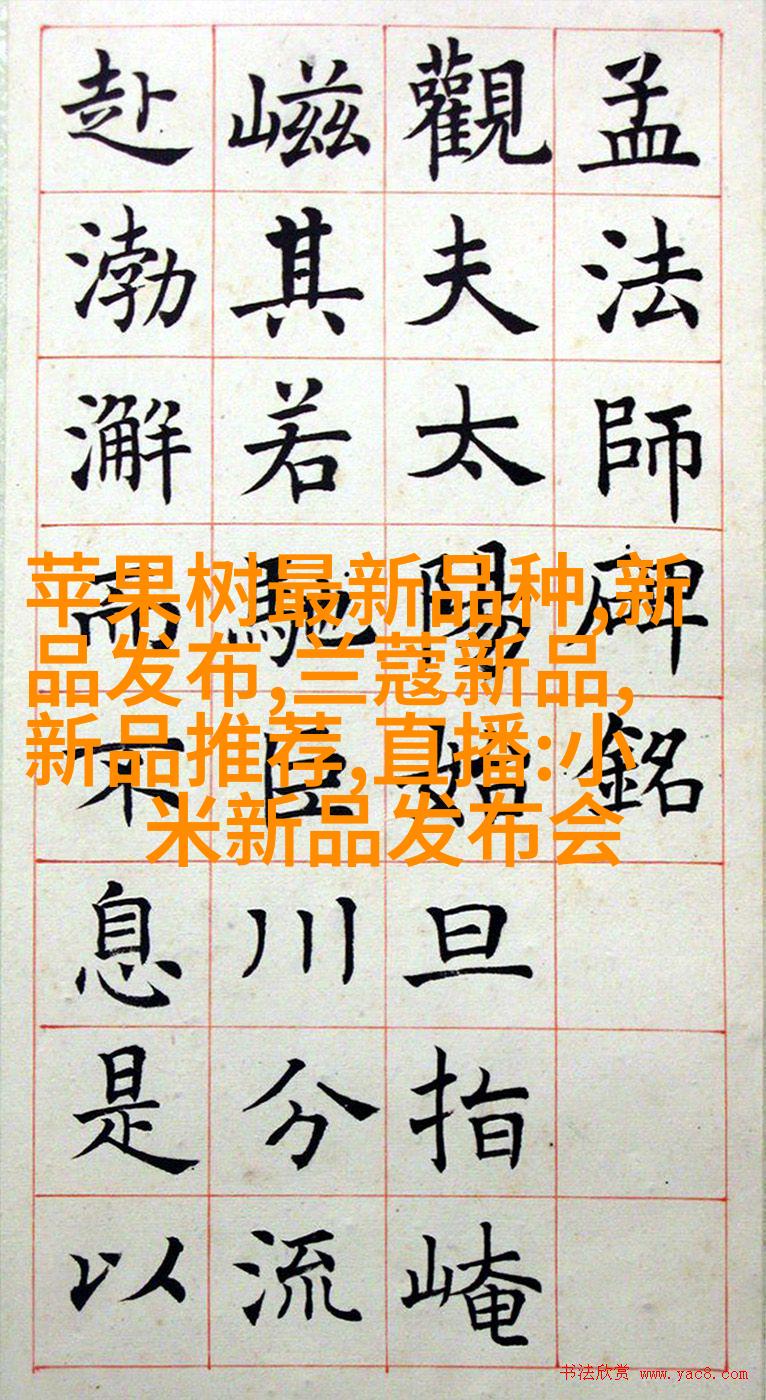 孟法師碑銘
觀夫太陽始旦指崦
嵫其若馳巨川分流
赴渤澥而不息是以
苹果树最新品种,新
品发布,兰蔻新品,
新品推荐,直播:小
米新品发布会
书法欣赏 www.yac8.com